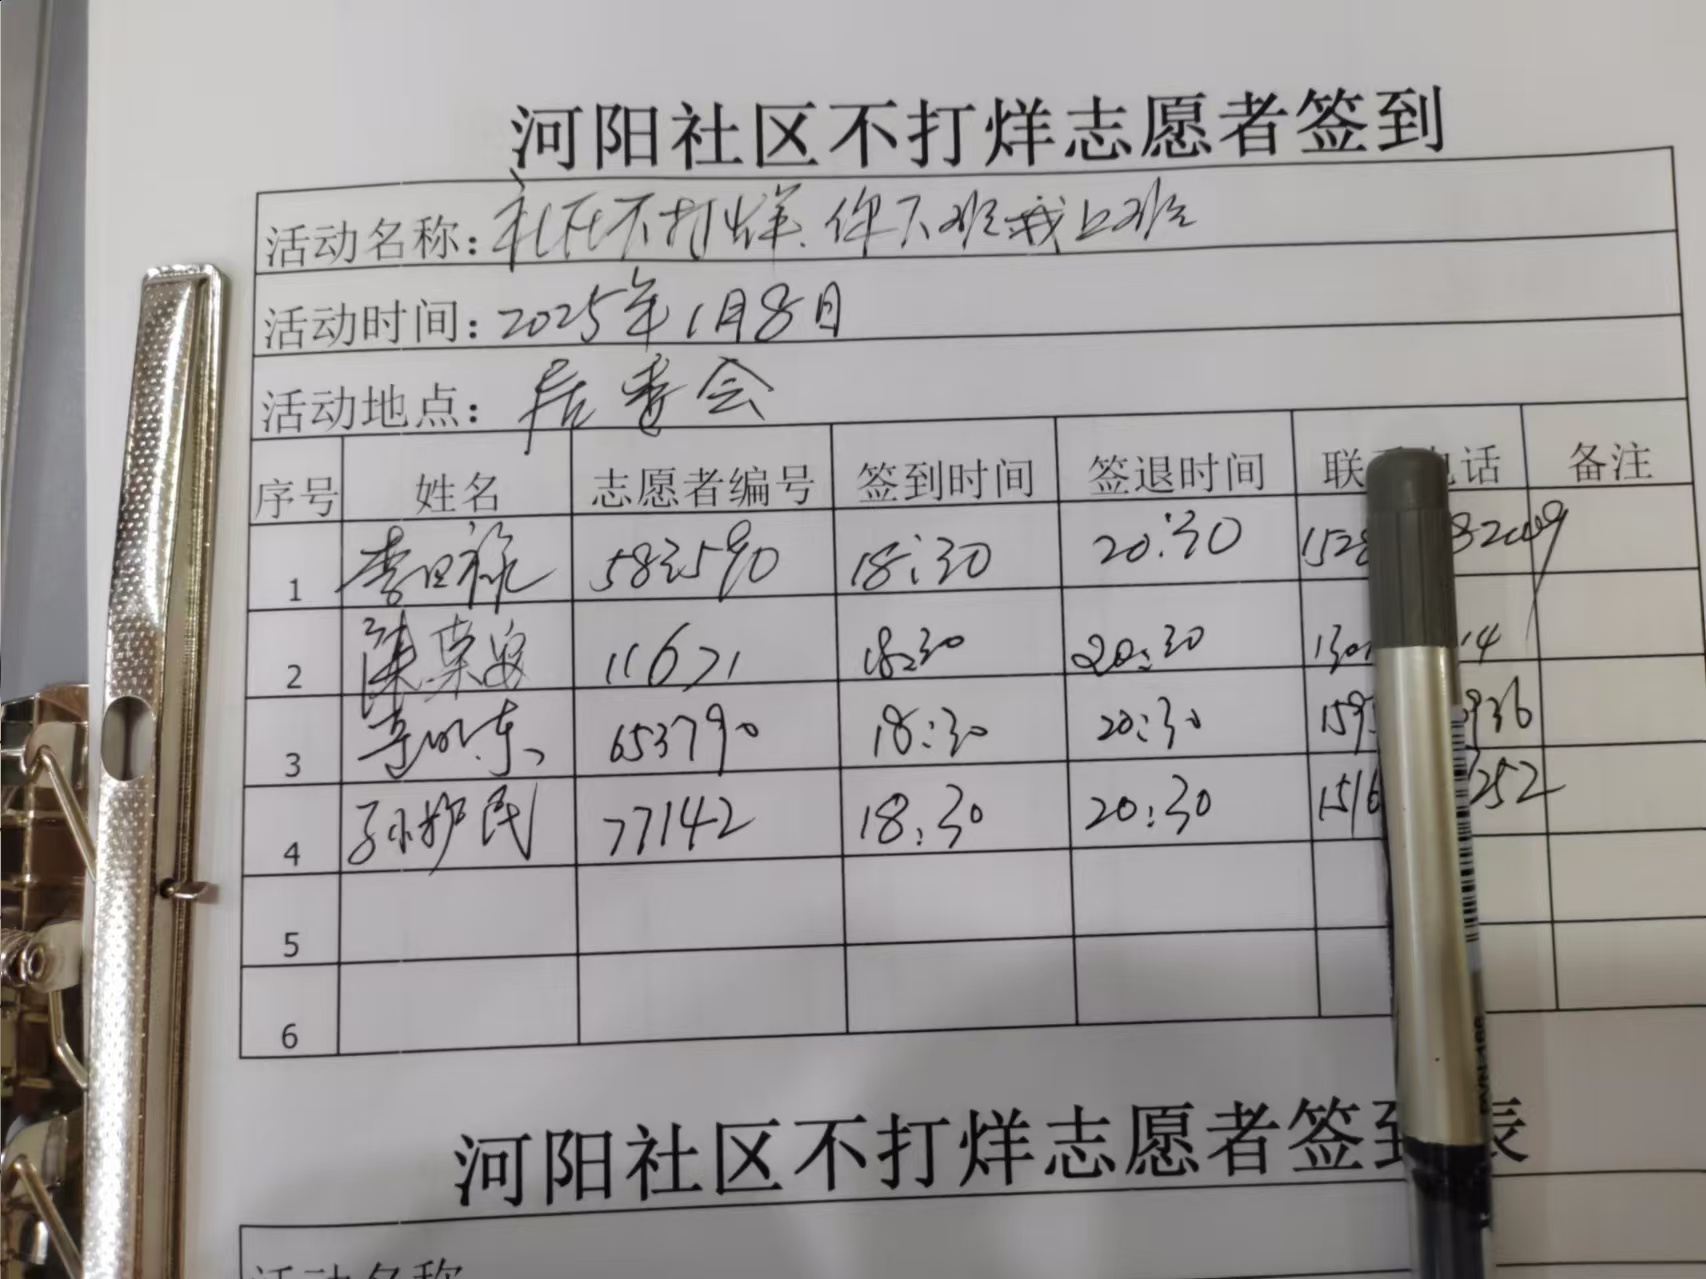 河阳社区不打烊志愿者签到
活动名称：社区不打烊、你下班我上班
活动时间：2025年1月8日
活动地点：居委会
序号 姓名 志愿者编号 签到时间 签退时间 联 电话 备注
1 583590 18:30 20:30 1528 82009
2 陈荣安 11671 18:30 20:30 130 14
3 李明东 653790 18:30 20:30 159 0936
4 孙护民 77142 18:30 20:30 1516 252
5
6
河阳社区不打烊志愿者签到表
活动名称